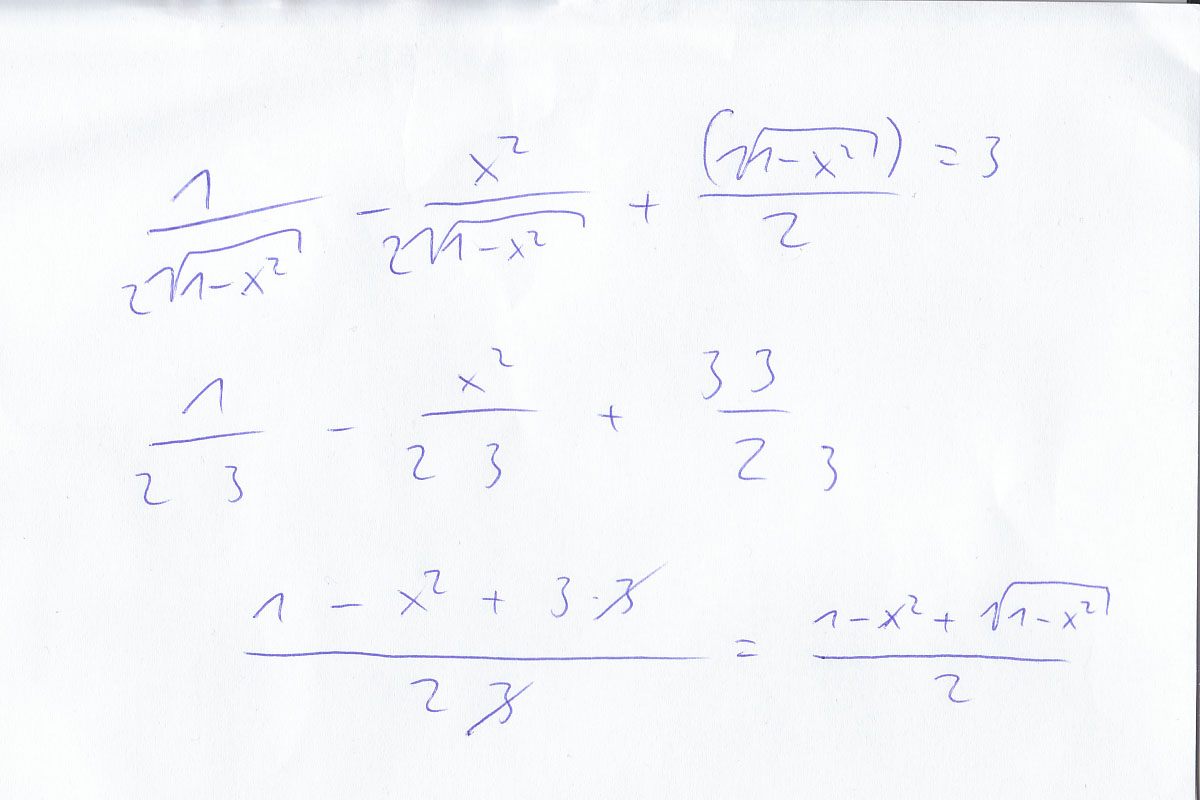 1/(2√(1-x²)) - x²/(2√(1-x²)) + (√(1-x²))/2 = 3
1/(2 3) - x²/(2 3) + (3 3)/(2 3)
(1 - x² + 3·3)/(2 3) = (1-x² + √(1-x²))/2